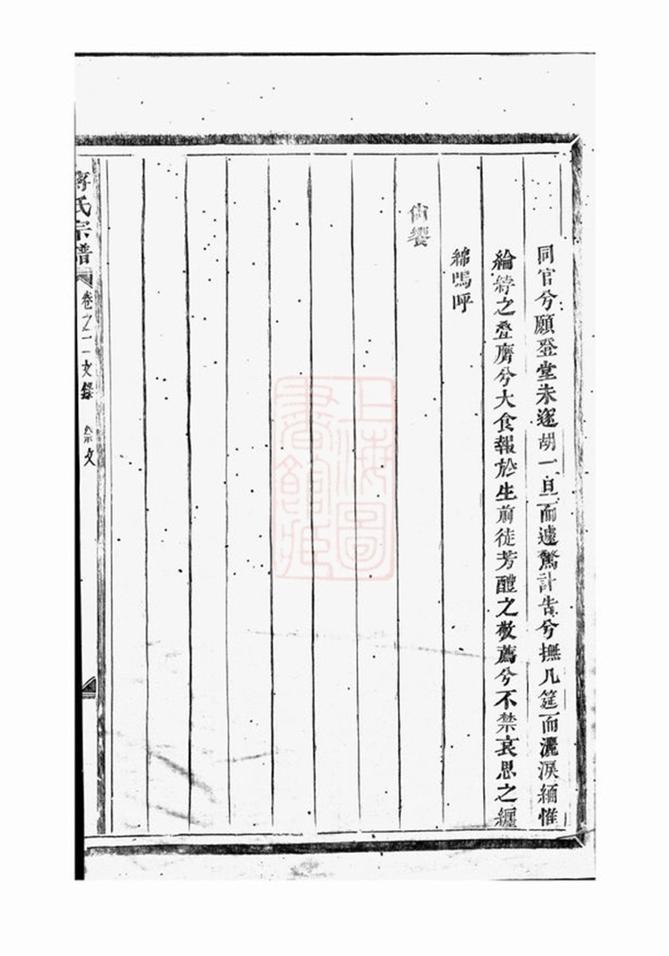 同官兮願登堂未遂胡一旦而遽驚訃告兮撫几筵而灑淚緬惟
綸綍之叠膺兮大食報於生前徒芳醴之敬薦兮不禁哀思之纒
綿嗚呼
尚饗
氏宗譜 卷之二 文錄 祭文
上海圖書館藏